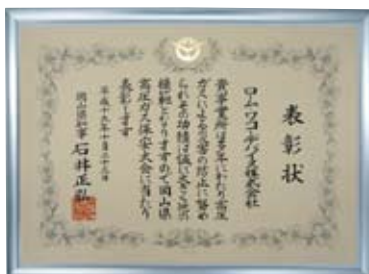 表彰状
ローム・ワコーデバイス株式会社
貴事業所は多年にわたり高圧
ガスによる災害の防止に努め
られその功績は誠に大きく他の
模範となりますので岡山県
高圧ガス保安大会に当たり
表彰します
平成十九年十月二十三日
岡山県知事 石井正弘